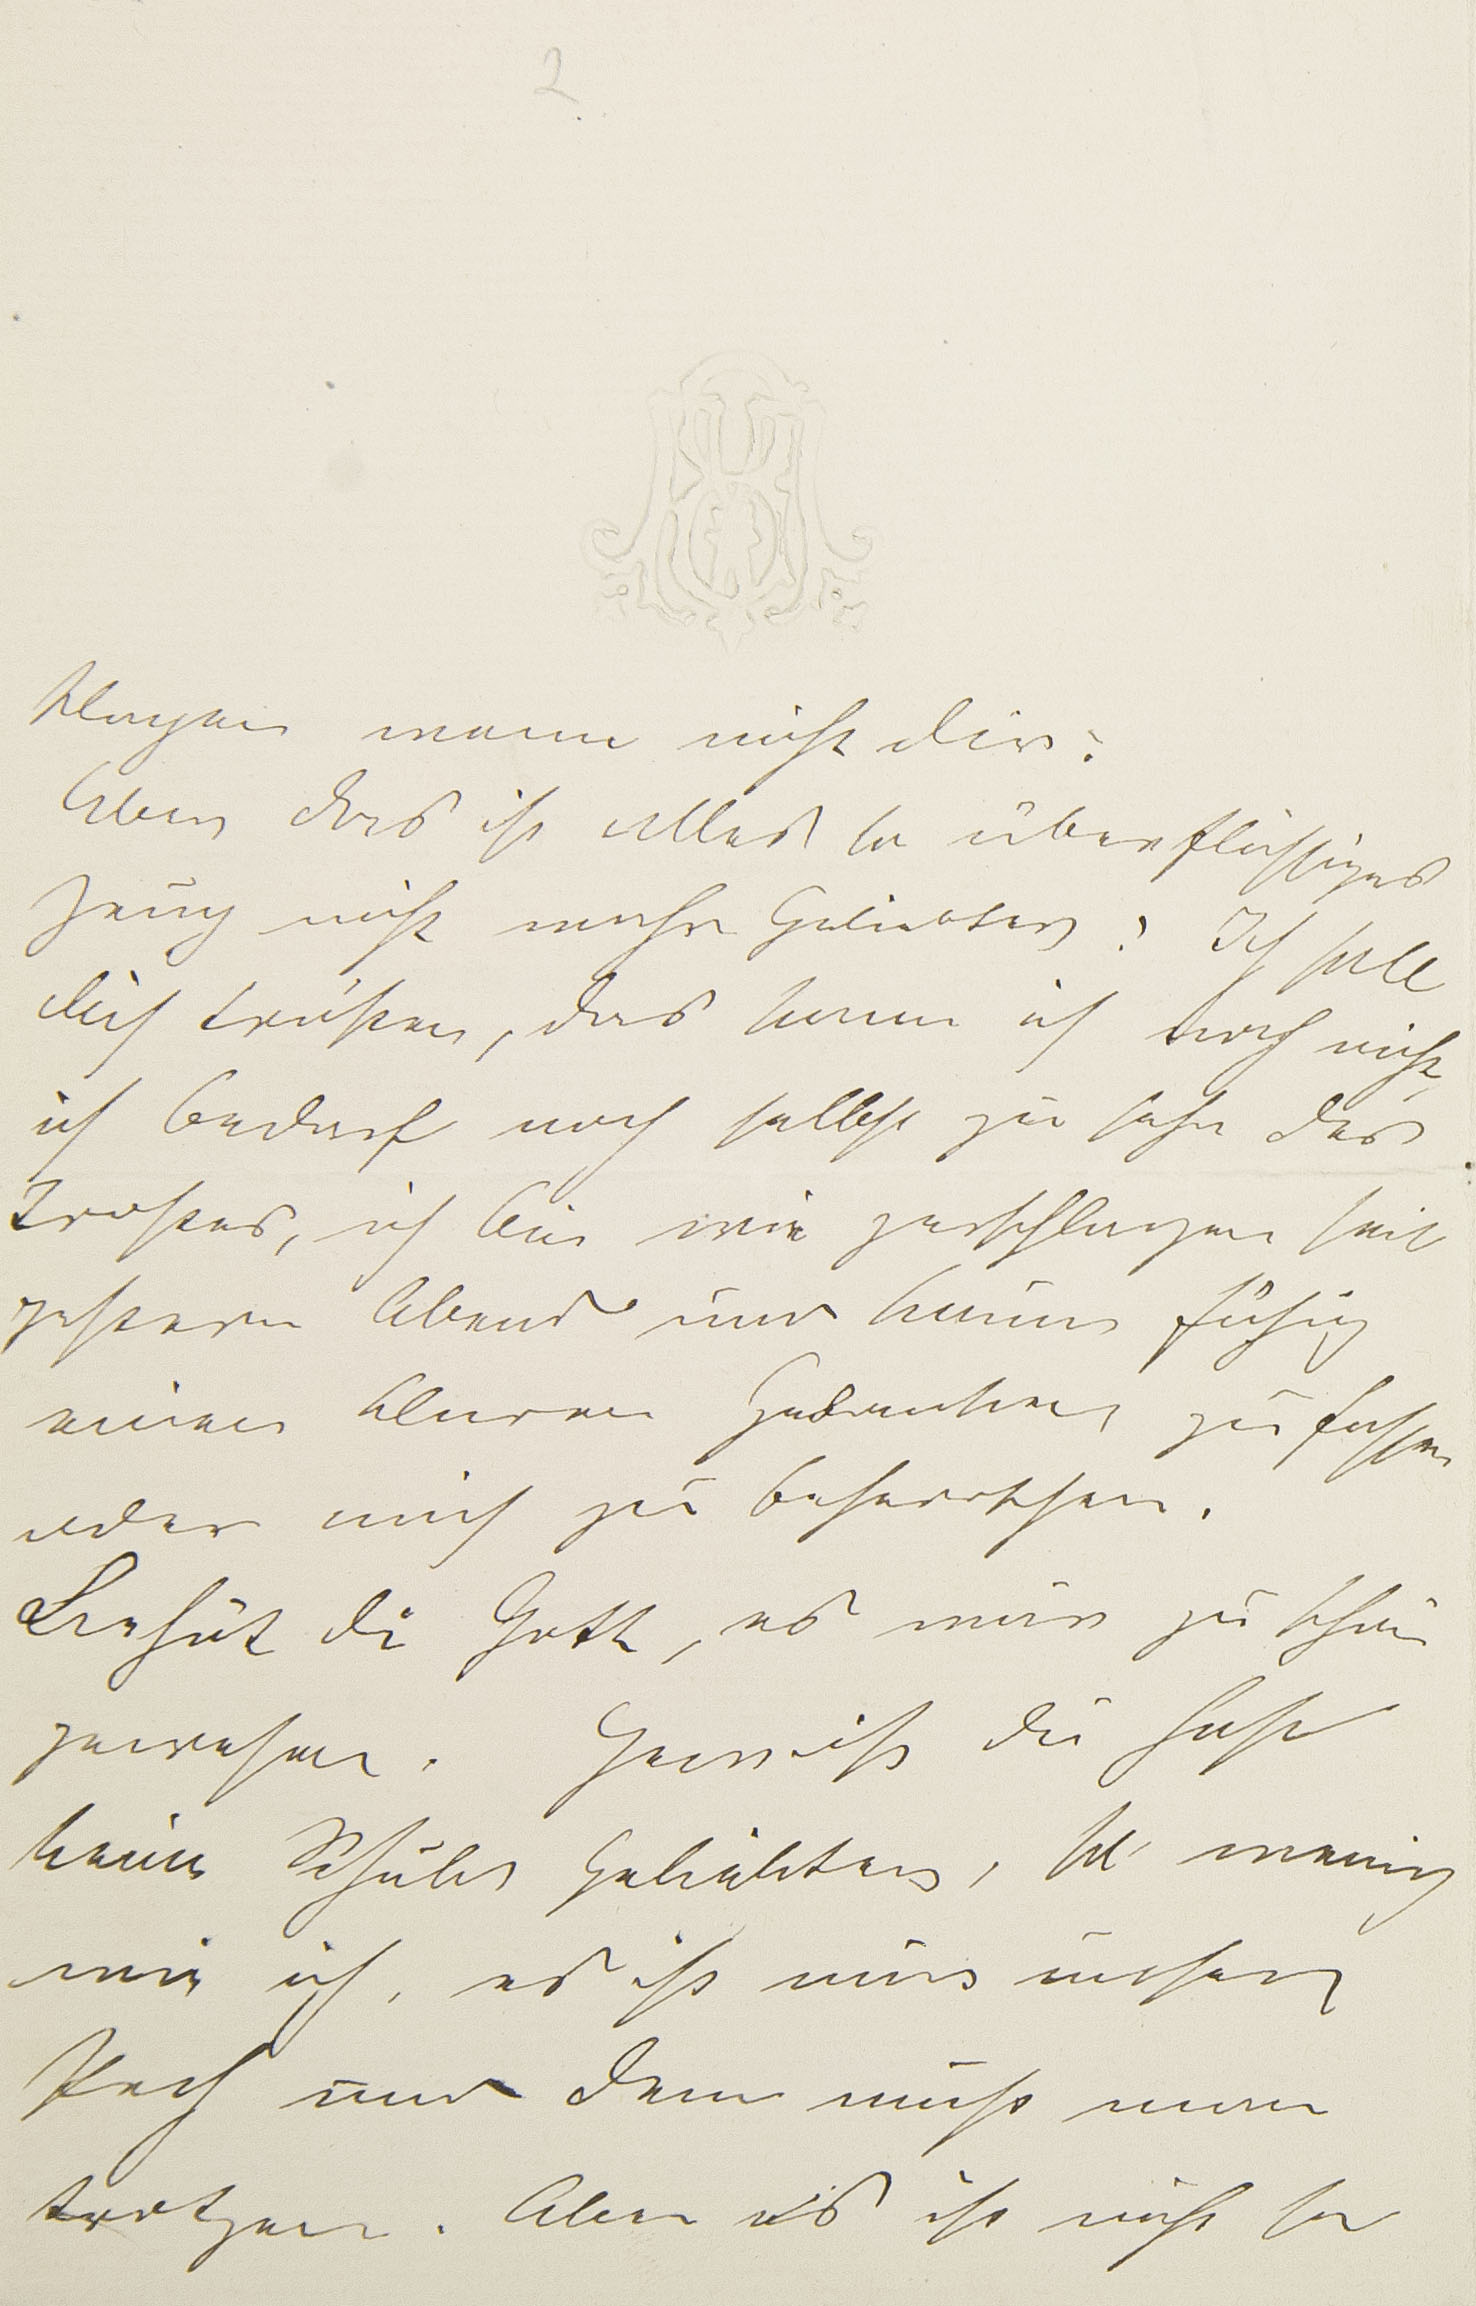 2
klagen wenn nicht dir?
Aber das ist alles so überflüssiges
Zeug nicht wahr Geliebter? Ich soll
dich trösten, das kann ich noch nicht,
ich bedarf noch selbst zu sehr des
Trostes, ich bin wie zerschlagen seit
gestern Abend und kaum fähig
einen klaren Gedanken zu fassen
oder mich zu beherrschen.
Behüt di Gott, es wär zu schön
gewesen. Gewiss du hast
keine Schuld Geliebter, so wenig
wie ich, es ist nur unser
Pech und dem muss man
trotzen. Aber es ist nicht so